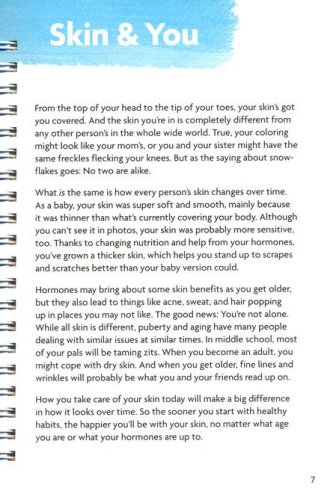 Skin & You
From the top of your head to the tip of your toes, your skin's got
you covered. And the skin you're in is completely different from
any other person's in the whole wide world. True, your coloring
might look like your mom's, or you and your sister might have the
same freckles flecking your knees. But as the saying about snow-
flakes goes: No two are alike.
What is the same is how every person's skin changes over time.
As a baby, your skin was super soft and smooth, mainly because
it was thinner than what's currently covering your body. Although
you can't see it in photos, your skin was probably more sensitive,
too. Thanks to changing nutrition and help from your hormones,
you've grown a thicker skin, which helps you stand up to scrapes
and scratches better than your baby version could.
Hormones may bring about some skin benefits as you get older,
but they also lead to things like acne, sweat, and hair popping
up in places you may not like. The good news: You're not alone.
While all skin is different, puberty and aging have many people
dealing with similar issues at similar times. In middle school, most
of your pals will be taming zits. When you become an adult, you
might cope with dry skin. And when you get older, fine lines and
wrinkles will probably be what you and your friends read up on.
How you take care of your skin today will make a big difference
in how it looks over time. So the sooner you start with healthy
habits, the happier you'll be with your skin, no matter what age
you are or what your hormones are up to.
7